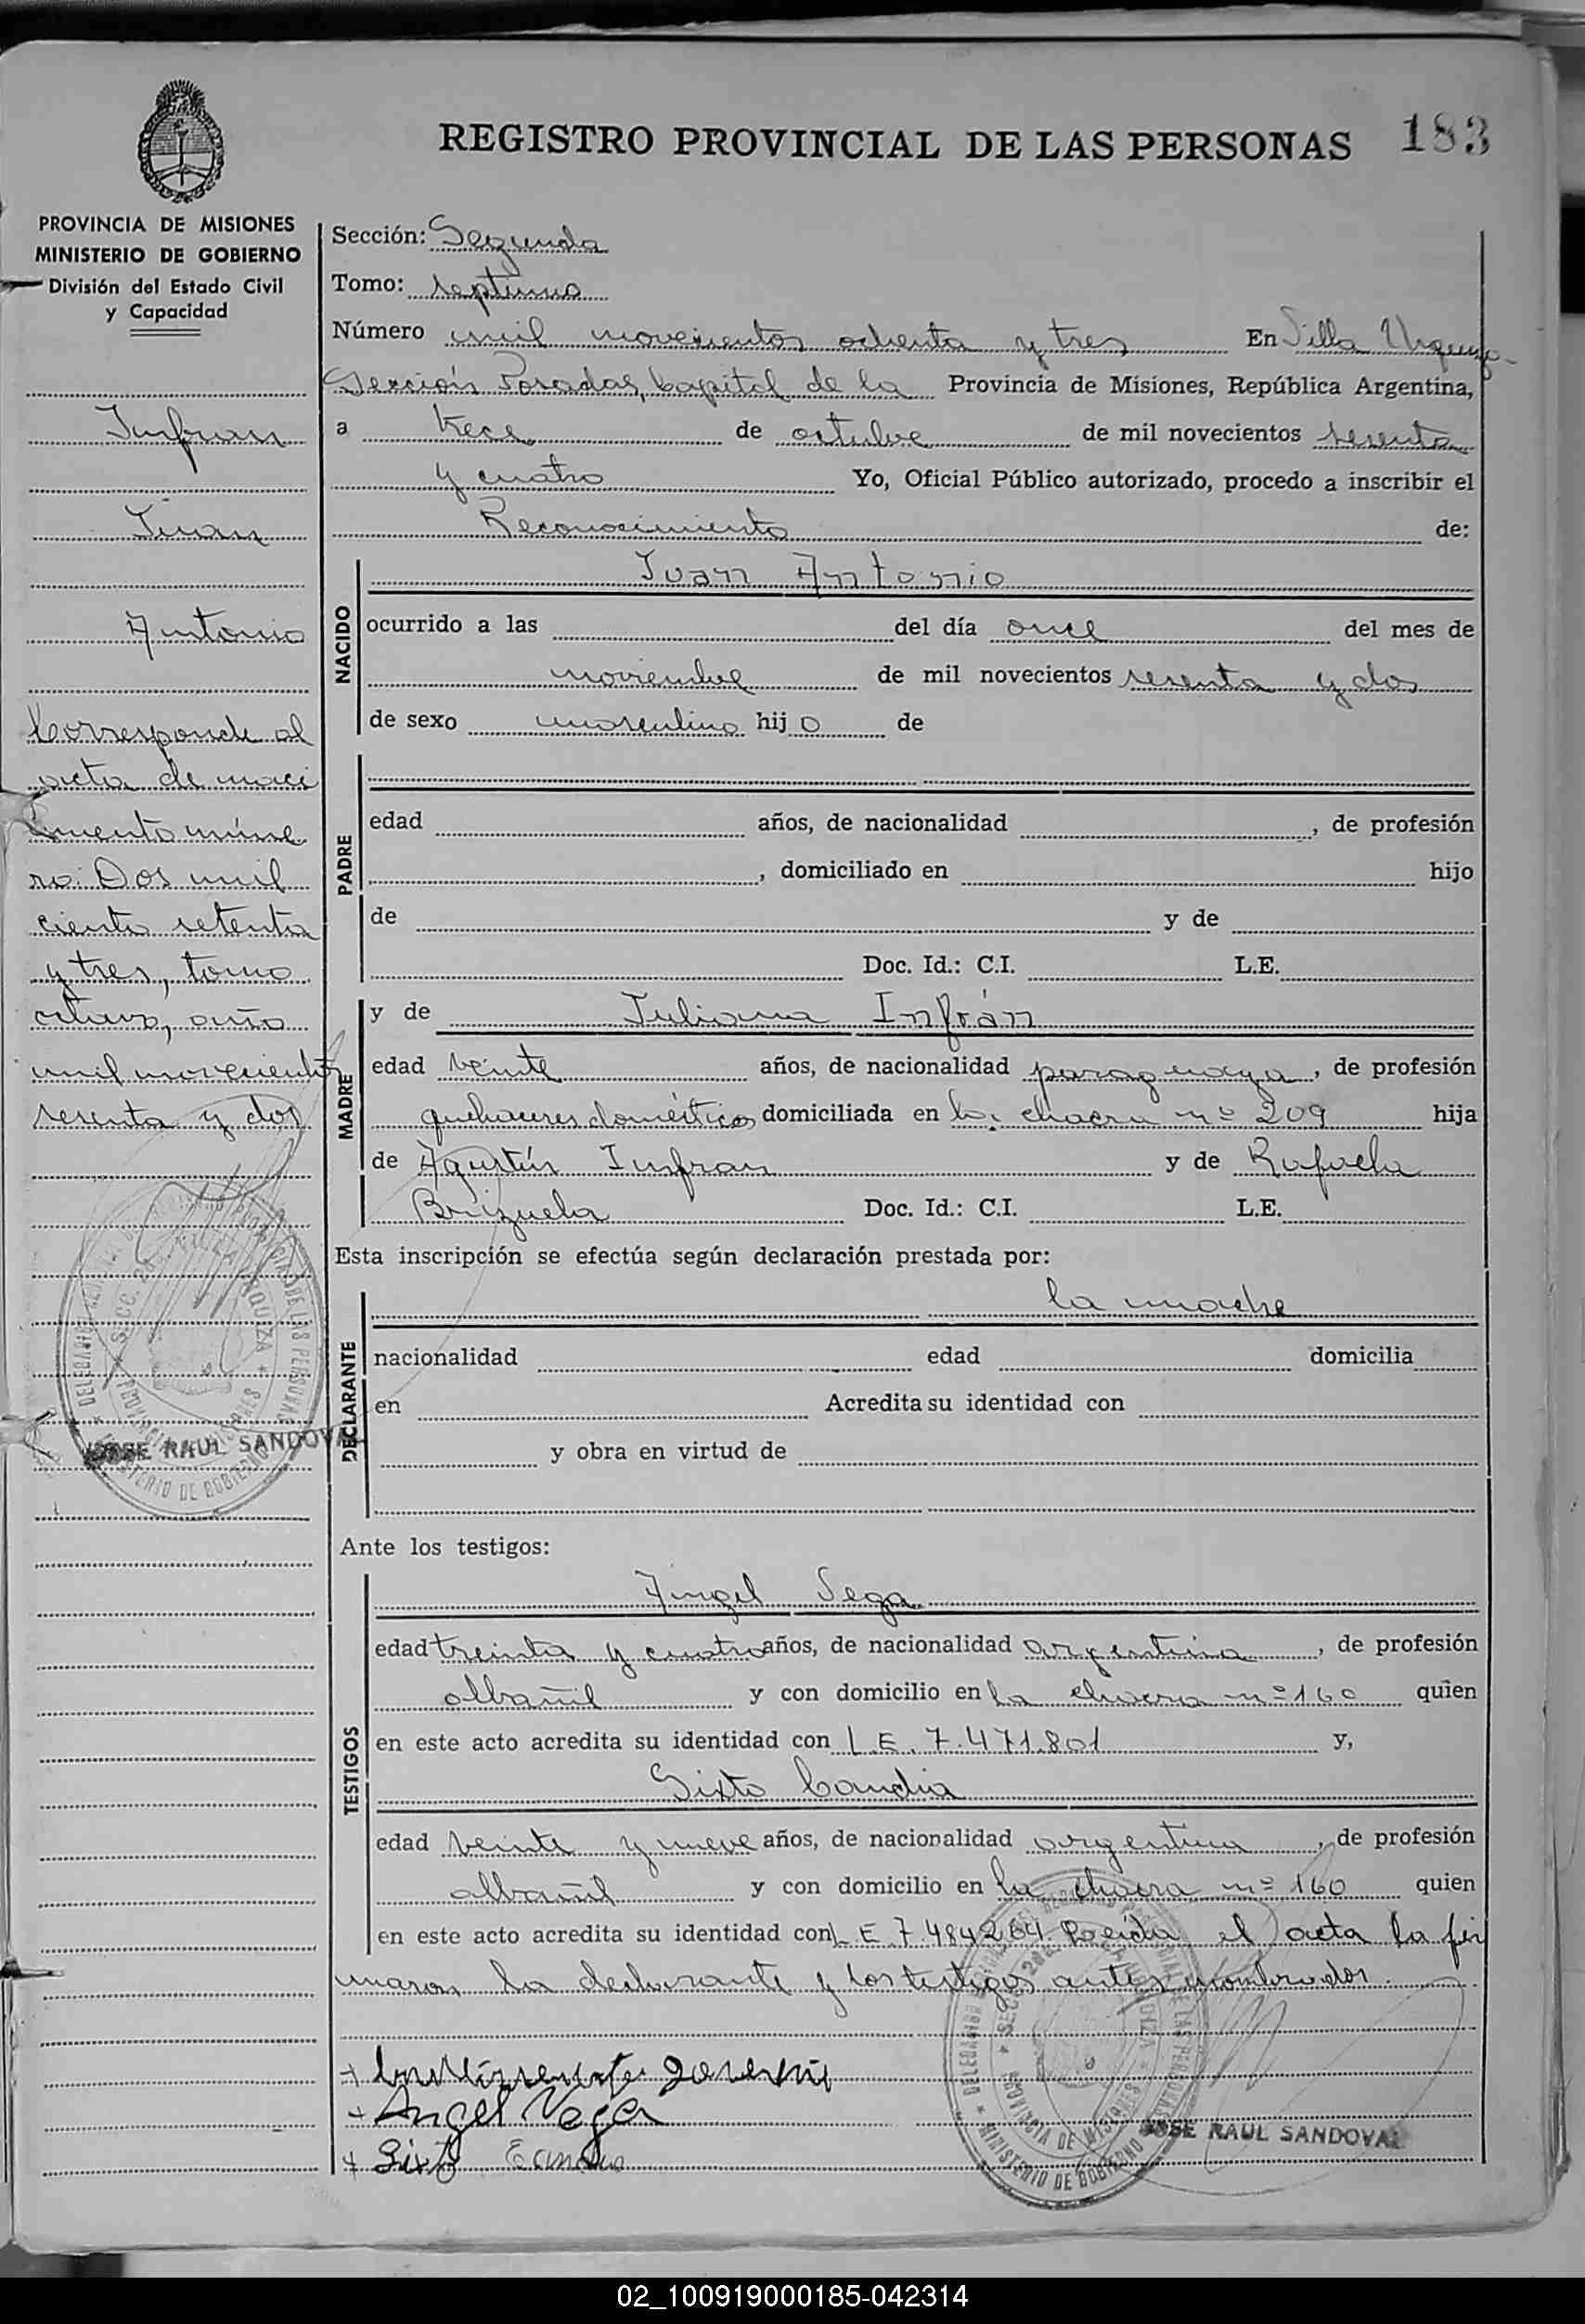 REGISTRO PROVINCIAL DE LAS PERSONAS 183
PROVINCIA DE MISIONES
MINISTERIO DE GOBIERNO
División del Estado Civil
y Capacidad
Infran
Juan
Antonio
Corresponde al
acta de naci
miento núme
ro: Dos mil
ciento setenta
y tres, tomo
octavo, año
mil novecientos
sesenta y dos
JOSE RAUL SANDOVAL
Sección: Segunda
Tomo: septimo
Número mil novecientos ochenta y tres En Villa Urquiza
Sección Posadas, Capital de la Provincia de Misiones, República Argentina,
a trece de octubre de mil novecientos sesenta
y cuatro Yo, Oficial Público autorizado, procedo a inscribir el
Reconocimiento de:
NACIDO
Juan Antonio
ocurrido a las del día once del mes de
noviembre de mil novecientos sesenta y dos
de sexo masculino hijo de
PADRE
edad años, de nacionalidad , de profesión
, domiciliado en hijo
de y de
Doc. Id.: C.I. L.E.
MADRE
y de Juliana Infrán
edad veinte años, de nacionalidad paraguaya, de profesión
quehaceres domésticos domiciliada en la chacra nº 209 hija
de Agustín Infran y de Rafaela
Brizuela Doc. Id.: C.I. L.E.
Esta inscripción se efectúa según declaración prestada por:
DECLARANTE
la madre
nacionalidad edad domicilia
en Acredita su identidad con
y obra en virtud de
Ante los testigos:
TESTIGOS
Angel Vega
edad treinta y cuatro años, de nacionalidad argentina, de profesión
albañil y con domicilio en la chacra nº 160 quien
en este acto acredita su identidad con L.E. 7.471.801 y,
Sixto Candia
edad veinte y nueve años, de nacionalidad argentina, de profesión
albañil y con domicilio en la chacra nº 160 quien
en este acto acredita su identidad con L E 7.484264. Leída el acta la fir
maron la declarante y los testigos antes nombrados.
+ Angel Vega
+ Sixto
JOSE RAUL SANDOVAL
02_100919000185-042314